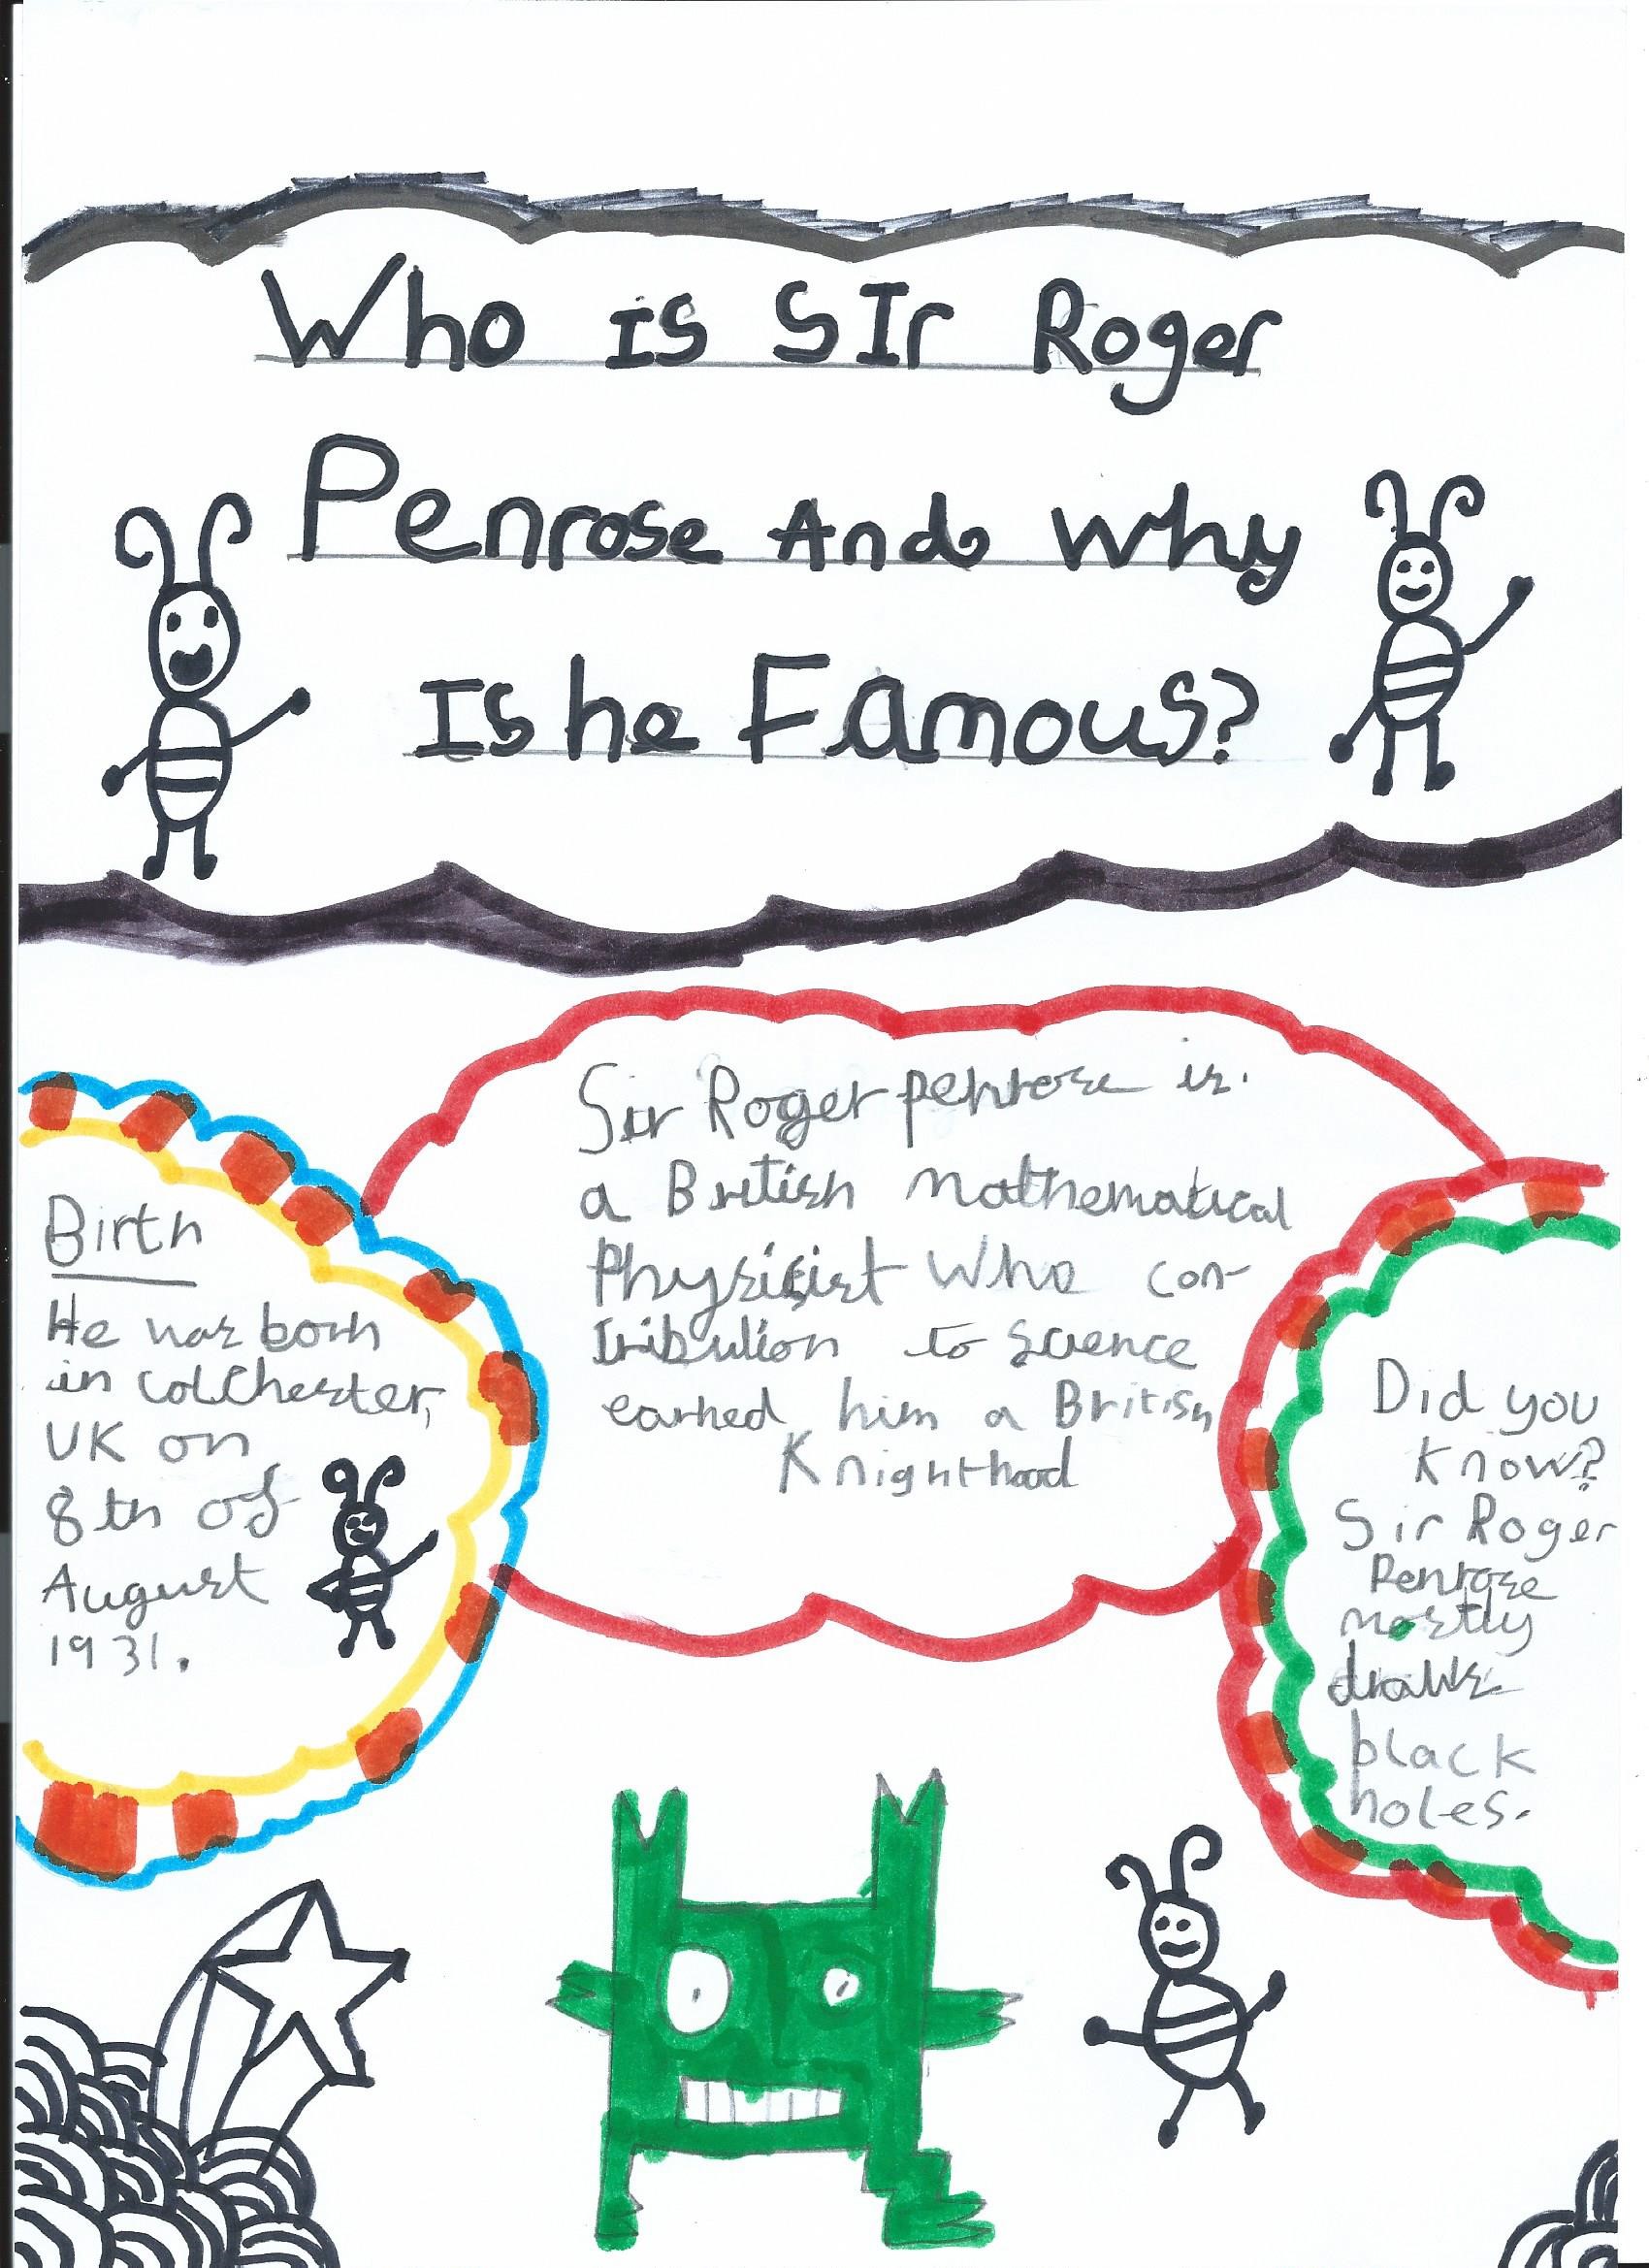 Who is SIr Roger
Penrose And why
Is he Famous?
Sir Roger penrose is.
a British mathematical
Physicist Who con-
tribution to science
earned him a British
Knighthood
Birth
He was born
in colchester,
UK on
8th of
August
1931.
Did you
know?
Sir Roger
Penrose
mostly
draws
black
holes.